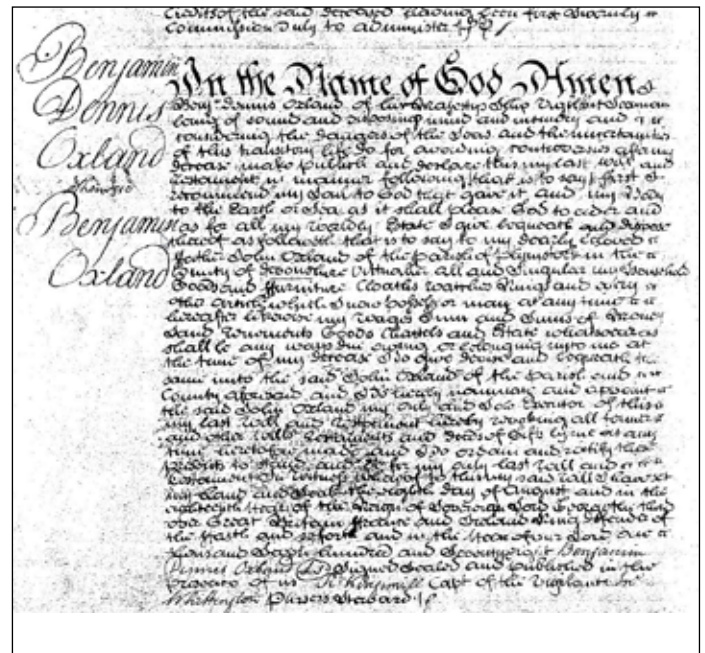 Credits of the said deceased having been first Sworn by
Commission Duly to administer
Benjamin
Dennis
Oxland
otherwise
Benjamin
Oxland
In the Name of God Amen
Benj. Dennis Oxland of his Majestys Ship Vigilant Seaman
being of sound and disposing mind and memory and
considering the dangers of the Seas and the uncertainties
of this transitory life do for avoiding controversies after my
decease make publish and declare this my last will and
testament in manner following that is to say first I
recommend my Soul to God that gave it and my Body
to the Earth or Sea as it shall please God to order and
as for all my worldly Estate I give bequeath and dispose
thereof as followeth that is to say to my dearly beloved
Father John Oxland of the Parish of Plymstock in the
County of Devonshire Victualler all and Singular my Household
Goods and Furniture Cloaths Watches Rings and every
other article which I now possess or may at any time
hereafter likewise my Wages Sum and Sums of Money
Land Tenements Goods Chattels and Estate whatsoever as
shall be any ways due owing or belonging unto me at
the time of my decease I do give devise and bequeath the
same unto the said John Oxland of the Parish and
County aforesaid and I do hereby nominate and appoint
the said John Oxland my only and Sole Executor of this
my last will and Testament hereby revoking all former
and other wills Testaments and deeds of Gift by me at any
time heretofore made and I do ordain and ratify these
presents to stand and be for my only last Will and
Testament In witness whereof to this my said Will I have set
my hand and Seal the eighth day of August and in the
eighteenth Year of the Reign of Sovereign Lord George the third
over Great Britain France and Ireland King defender of
the Faith and so forth and in the Year of our Lord one
thousand Seven hundred and Seventy eight Benjamin
Dennis Oxland LS Signed Sealed and published in the
presence of us Kingsmill Capt of the Vigilante
Whittington Pursers Steward